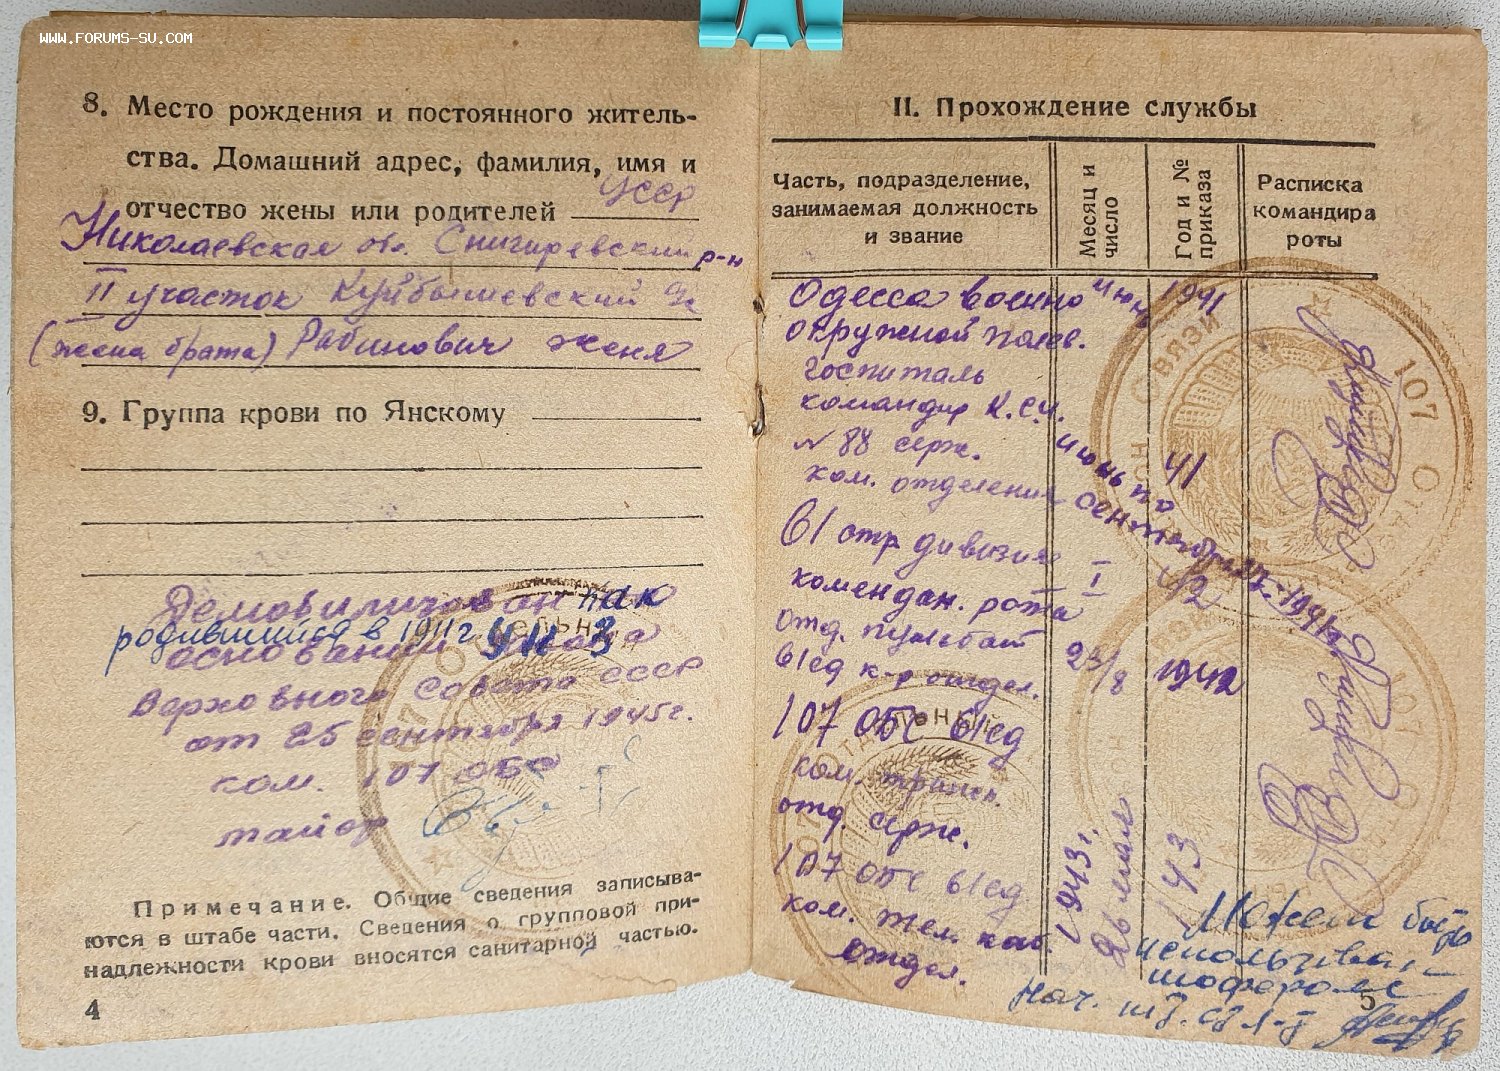 WWW.FORUMS-SU.COM
8. Место рождения и постоянного житель-
ства. Домашний адрес, фамилия, имя и
отчество жены или родителей УССР
Николаевская обл. Снигиревский р-н
II участок Куйбышевский
(жена брата) Рабинович Женя
9. Группа крови по Янскому
Демобилизован на
родившийся в 1911 г
основании Указа
Верховного Совета СССР
от 25 сентября 1945 г.
ком. 107 ОБС
майор
Примечание. Общие сведения записыва-
ются в штабе части. Сведения о групповой при-
надлежности крови вносятся санитарной частью.
4
II. Прохождение службы
Часть, подразделение,
занимаемая должность
и звание
Месяц и
число
Год и №
приказа
Расписка
командира
роты
Одесса военно июнь 1941
окружной полев.
госпиталь
командир
№ 88 серж. июнь по 41
ком. отделения сентябрь 1941
61 стр дивизия I 42
комендан. рота
отд. пульбат
61сд к-р отдел. 23/8 1942
107 ОБС 61сд
ком.
отд. серж.
107 ОБС 61сд 1943г. 43
ком. тел. каб.
отдел.
Может быть
использован
шофером
Нач. шт.
5
107
СВЯЗИ